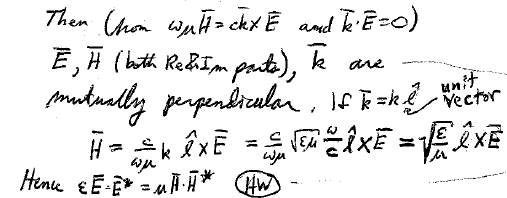 Then (from ωμH̄ = ck̄×Ē and k̄·Ē=0)
Ē, H̄ (both Re&Im parts), k̄ are
mutually perpendicular. If k̄=k l̂ unit vector
H̄ = c/ωμ k l̂×Ē = c/ωμ √εμ ω/c l̂×Ē = √ε/μ l̂×Ē
Hence εĒ·Ē* = μH̄·H̄* HW